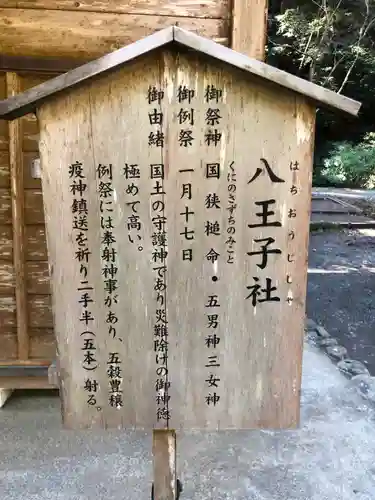 はちおうじしゃ
八王子社
くにのさずちのみこと
御祭神　国狭槌命・五男神三女神
御例祭　一月十七日
御由緒　国土の守護神であり災難除けの御神徳
極めて高い。
例祭には奉射神事があり、五穀豊穣
疫神鎮送を祈り二手半（五本）射る。